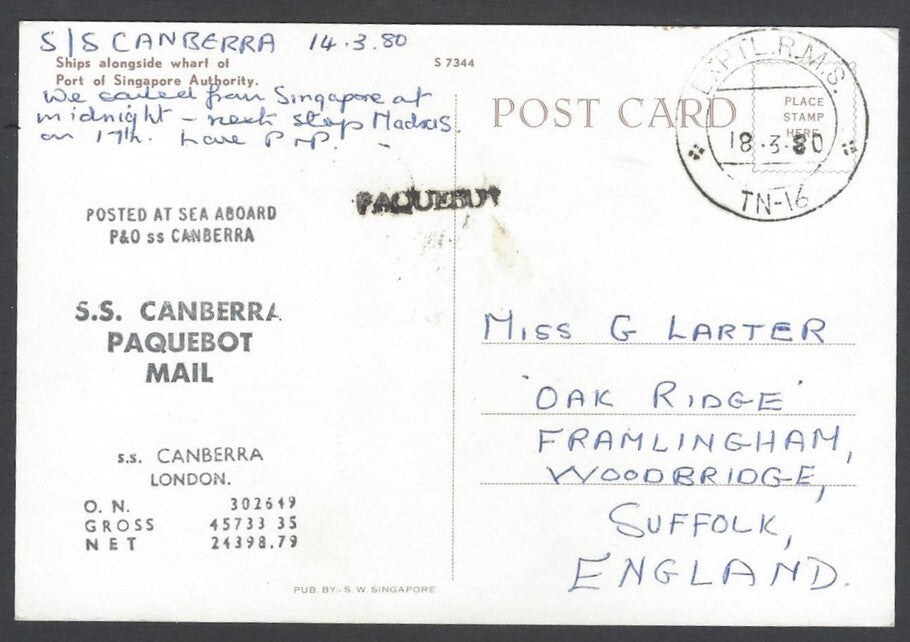 S/S CANBERRA 14.3.80
Ships alongside wharf of
Port of Singapore Authority.
S 7344
We sailed from Singapore at
midnight – next stop Madras
on 17th. Love P
POSTED AT SEA ABOARD
P&O ss CANBERRA
S.S. CANBERRA
PAQUEBOT
MAIL
s.s. CANBERRA
LONDON.
O. N. 302649
GROSS 45733 35
NET 24398.79
PUB. BY:- S. W. SINGAPORE
POST CARD
PAQUEBOT
PLACE
STAMP
HERE
R.M.S.
18.3.80
TN-16
MISS G LARTER
'OAK RIDGE'
FRAMLINGHAM,
WOODBRIDGE,
SUFFOLK,
ENGLAND.